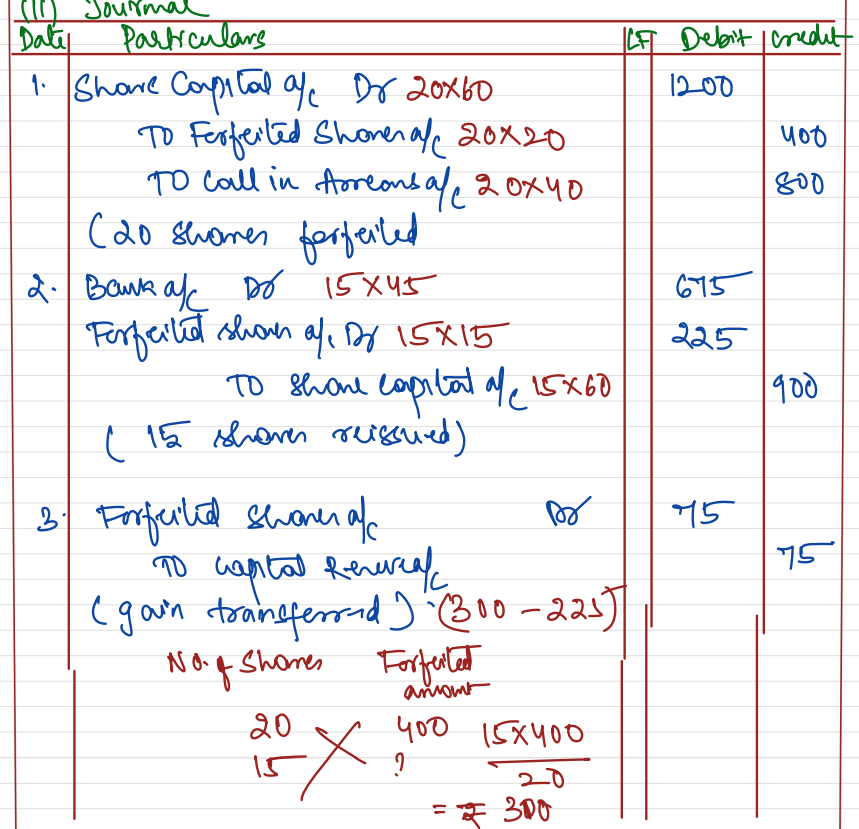 (II) Journal
Date Particulars LF Debit Credit
1. Share Capital a/c Dr 20x60 1200
To Forfeited Shares a/c 20x20 400
To Call in Arrears a/c 20x40 800
(20 shares forfeited
2. Bank a/c Dr 15x45 675
Forfeited share a/c Dr 15x15 225
To share capital a/c 15x60 900
(15 shares reissued)
3. Forfeited shares a/c Dr 75
To Capital Reserve a/c 75
(gain transferred) (300-225)
No. of Shares Forfeited
amount
20 400 15x400
15 ? 20
= ₹ 300